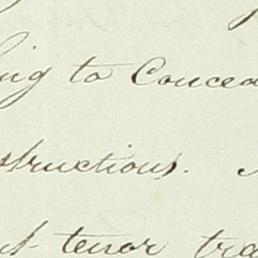 ing to Concea
structions.
tenor tra